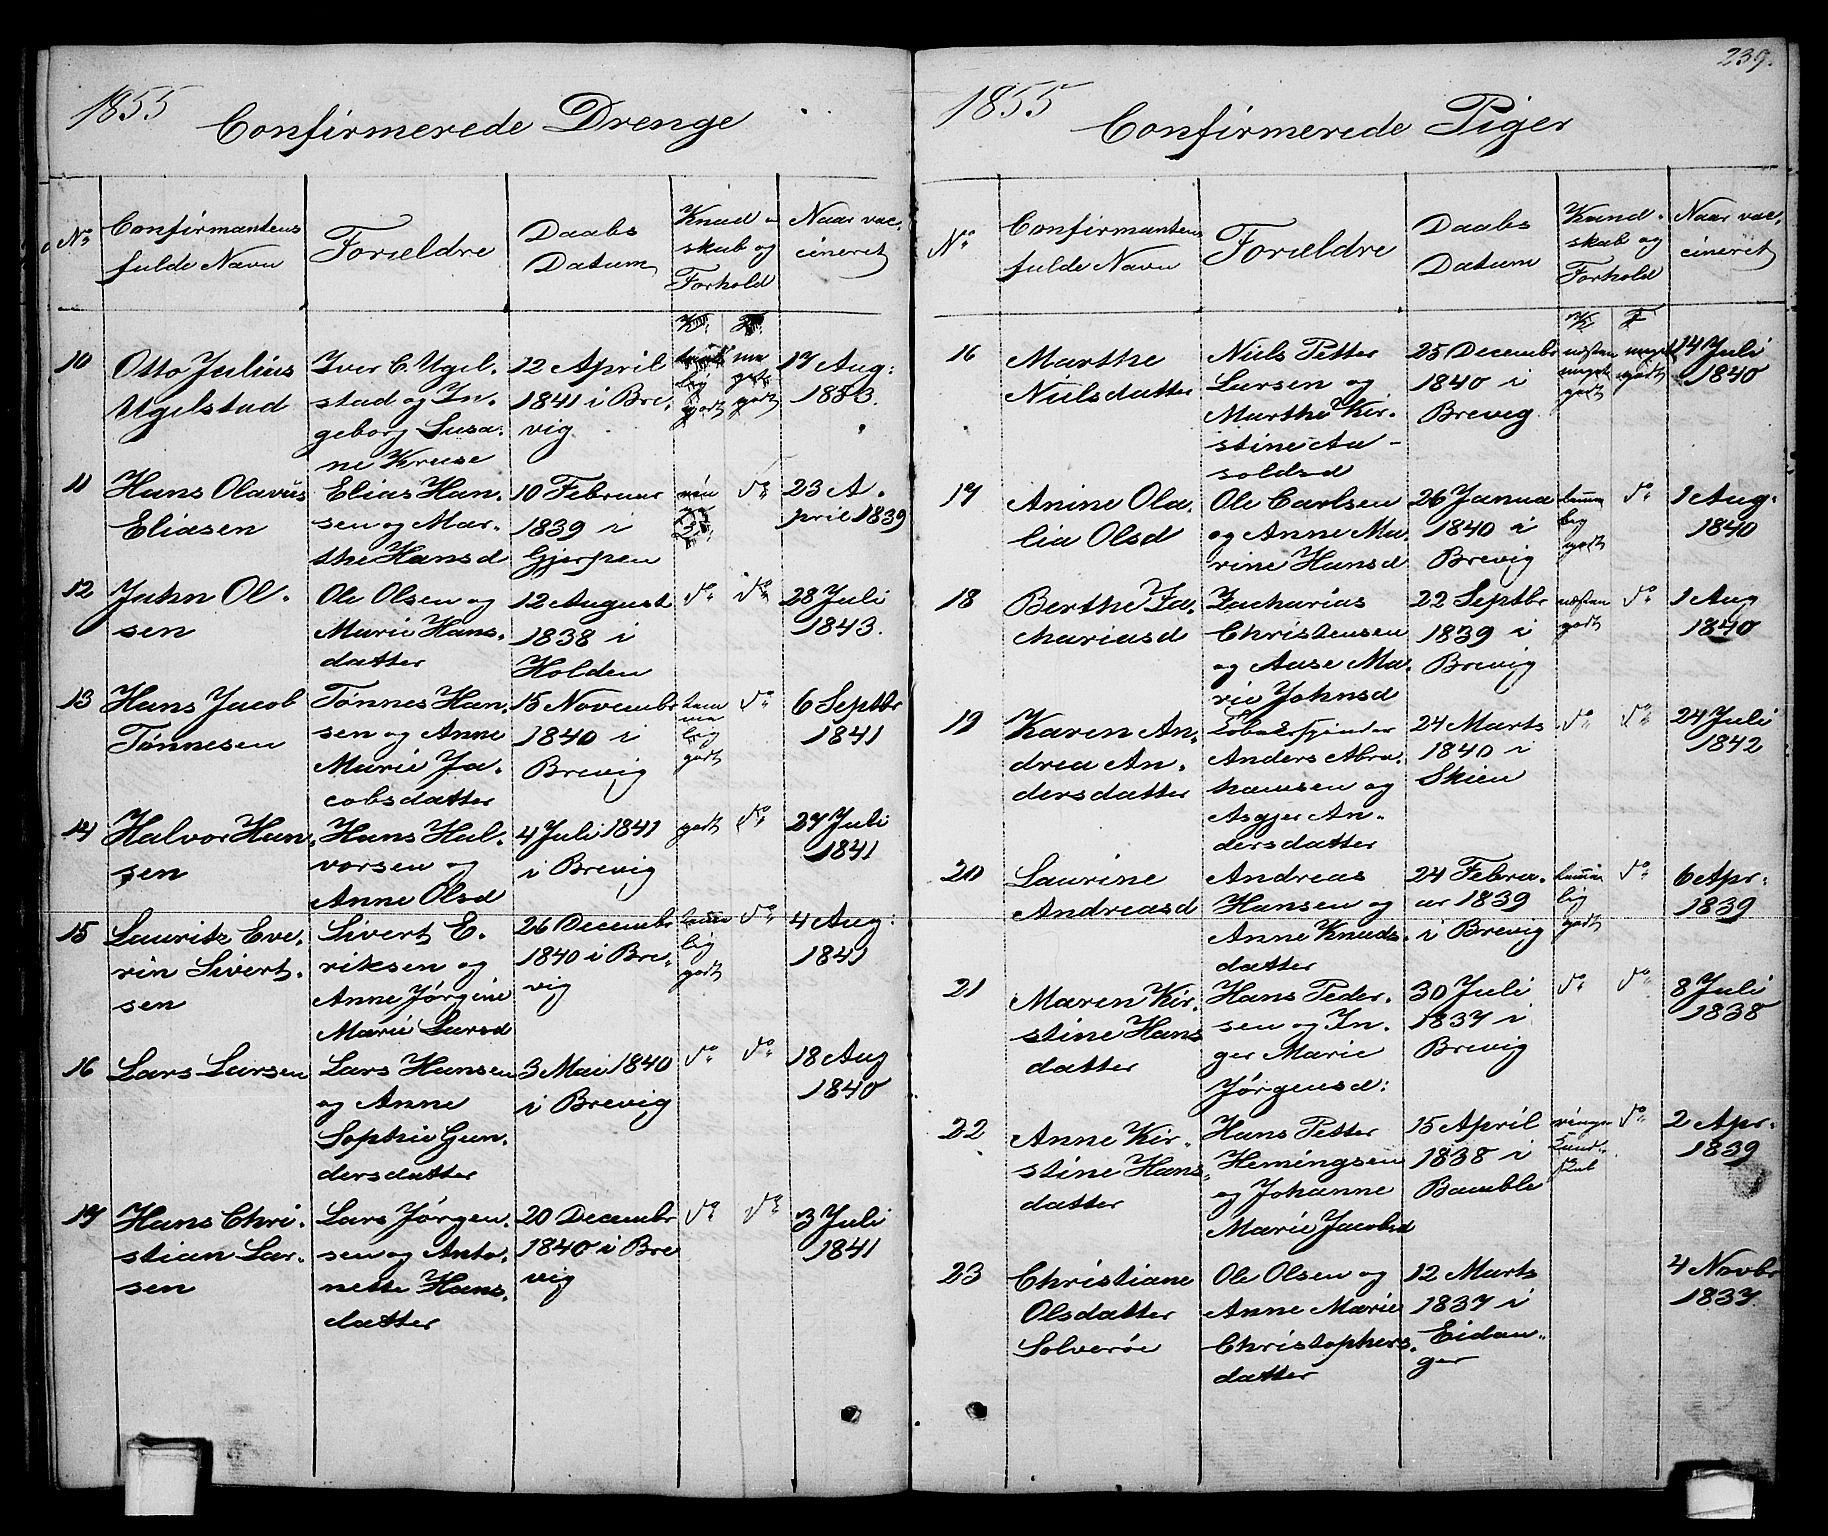 1855
Confirmerede Drenge
No
Confirmantens
fulde Navn
Forældre
Daabs
Datum
Kund-
skab og
Forhold
Naar vac-
cineret
K: F:
10
Otto Julius
Ugelstad
Iver C. Ugel-
stad og In-
geborg Susa-
ne Kruse
12 April
1841 i Bre-
vig
temme
lig
godt
me
get
godt
17 Aug:
1853.
11
Hans Olavus
Eliasen
Elias Han-
sen og Mar-
the Hansd
10 Februar
1839 i
Gjerpen
do
23 A-
pril 1839
12
John Ol-
sen
Ole Olsen og
Marie Hans-
datter
12 August
1838 i
Holden
do
do
28 Juli
1843.
13
Hans Jacob
Tønnesen
Tønnes Han-
sen og Anne
Marie Ja-
cobsdatter
15 Novembr
1840 i
Brevig
tem
me
lig
godt
do
6 Septbr
1841
14
Halvor Han-
sen
Hans Hal-
vorsen og
Anne Olsd
4 Juli 1841
i Brevig
godt
do
27 Juli
1841
15
Lauritz Eve-
rin Sivert-
sen
Sivert E-
riksen og
Anne Jørgine
Marie Larsd
26 Decembr
1840 i Bre-
vig
temme
lig
godt
do
4 Aug:
1841
16
Lars Larsen
Lars Hansen
og Anne
Sophie Gun-
dersdatter
3 Mai 1840
i Brevig
do
do
18 Aug
1840
17
Hans Chri-
stian Lar-
sen
Lars Jørgen-
sen og Anto-
nette Hans-
datter
20 Decembr
1840 i Bre
vig
do
do
3 Juli
1841
239.
1855
Confirmerede Piger
No
Confirmantens
fulde Navn
Forældre
Daabs
Datum
Kund-
skab og
Forhold
Naar vac-
cineret
K F
16
Marthe
Nielsdatter
Niels Petter
Larsen og
Marthe Kir-
stine Aa-
soldsd
25 Decembr
1840 i
Brevig
næsten
meget
godt
meget
godt
14 Juli
1840
17
Anine Ola-
lia Olsd
Ole Carlsen
og Anne Ma-
rine Hansd
26 Janua
1840 i
Brevig
temme
lig
godt
do
1 Aug:
1840
18
Berthe Za-
chariasd
Zacharias
Christensen
og Aase Ma-
rie Johnsd
22 Septbr
1839 i
Brevig
næsten
godt
do
1 Aug
1840
19
Karen An-
drea An-
dersdatter
Anders Abra-
hamsen og
Asgjer An-
dersdatter
24 Marts
1840 i
Skien
do
do
24 Juli
1842
20
Laurine
Andreasd
Andreas
Hansen og
Anne Knuds-
datter
24 Febru-
ar 1839
i Brevig
temme
lig
godt
do
6 Apr:
1839
21
Maren Kir-
stine Hans
datter
Hans Peder-
sen og In-
ger Marie
Jørgensd:
30 Juli
1837 i
Brevig
do
do
8 Juli
1838
22
Anne Kir-
stine Hans-
datter
Hans Petter
Hemingsen
og Johanne
Marie Jacobsd
15 April
1838 i
Bamble
ringe
Kund-
skab
do
2 Apr:
1839
23
Christiane
Olsdatter
Solverøe
Ole Olsen og
Anne Marie
Christophers-
datter
12 Marts
1837 i
Eidan-
ger
4 Novbr
1837.